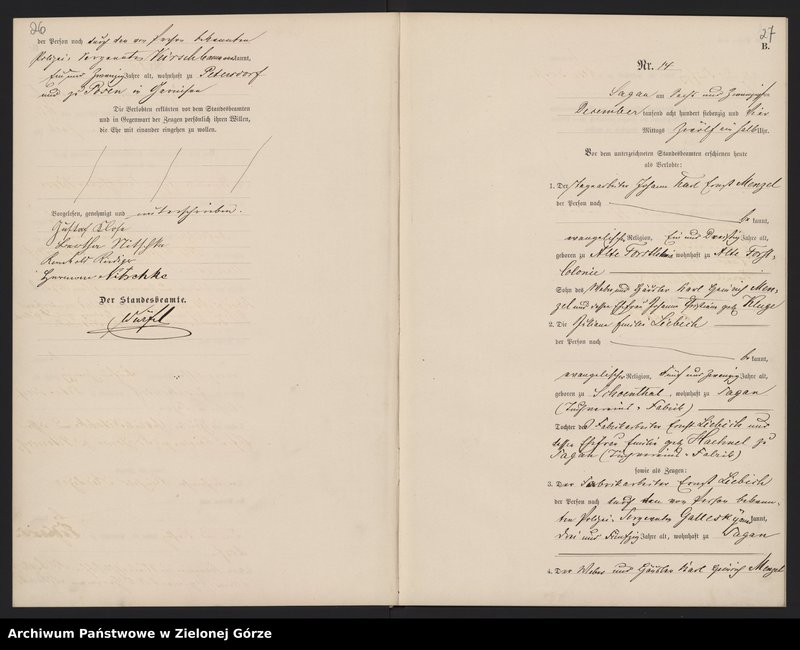 26
der Person nach durch den von Person bekannten
Polizei-Sergeanten Kirschke anerkannt,
Jahre alt, wohnhaft zu Petersdorf
und zu Posen in Garnison
Die Verlobten erklärten vor dem Standesbeamten
und in Gegenwart der Zeugen persönlich ihren Willen,
die Ehe mit einander eingehen zu wollen.
Vorgelesen, genehmigt und unterschrieben.
Gustav Klose
Bertha Nitschke
Reinhold
Hermann Nitschke
Der Standesbeamte.
Würfel
27
B.
Nr. 14
Sagan am Sechs und Zwanzigsten
Dezember tausend acht hundert siebenzig und vier
Mittags Zwölf ein halb Uhr.
Vor dem unterzeichneten Standesbeamten erschienen heute
als Verlobte:
1. Der Tagearbeiter Johann Karl Ernst Menzel
der Person nach
bekannt,
evangelischer Religion, Ein und Dreißig Jahre alt,
geboren zu Alte Forst wohnhaft zu Alte Forst-
Colonie
Sohn des Weber und Häusler Karl Heinrich Men-
zel und dessen Ehefrau Johanne Christiane geb. Kluge
2. Die Juliane Emilie Liebich
der Person nach
bekannt,
evangelischer Religion, Fünf und Zwanzig Jahre alt,
geboren zu Schoenthal, wohnhaft zu Sagan
(Tuchvereins-Fabrik)
Tochter des Fabrikarbeiter Ernst Liebich und
dessen Ehefrau Emilie geb. Haehnel zu
Sagan (Tuchvereins-Fabrik)
sowie als Zeugen:
3. Der Fabrikarbeiter Ernst Liebich
der Person nach durch den von Person bekann-
ten Polizei-Sergeanten Gallesky anerkannt,
Drei und Fünfzig Jahre alt, wohnhaft zu Sagan
4. Der Weber und Häusler Karl Heinrich Menzel
Archiwum Państwowe w Zielonej Górze